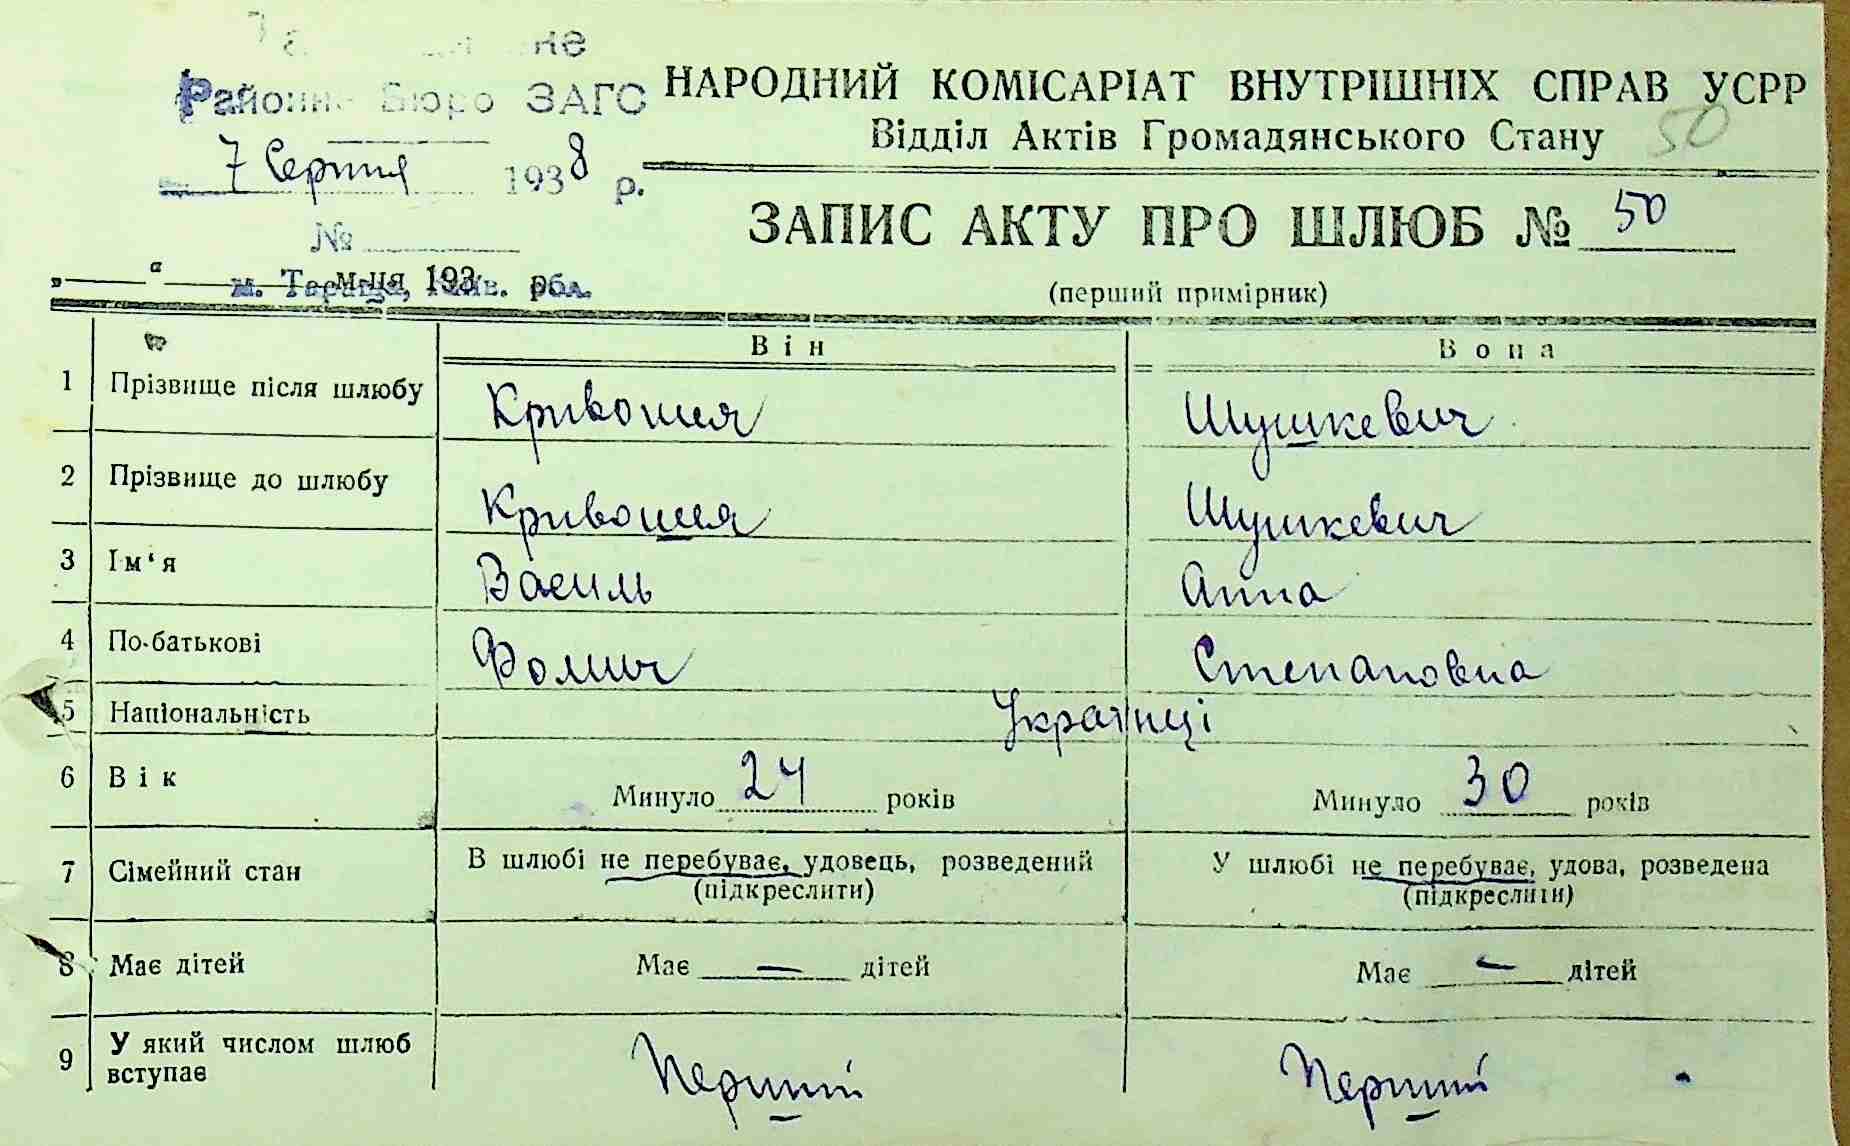 Районне Бюро ЗАГС
7 Серпня 1938 р.
№
м. Тараща, Київ. обл.
„ “ м-ця 193 р.
НАРОДНИЙ КОМІСАРІАТ ВНУТРІШНІХ СПРАВ УСРР
Відділ Актів Громадянського Стану 50
ЗАПИС АКТУ ПРО ШЛЮБ № 50
(перший примірник)
Він Вона
1 Прізвище після шлюбу Кривошия Шушкевич
2 Прізвище до шлюбу Кривошия Шушкевич
3 Ім‘я Василь Анна
4 По-батькові Фомич Степановна
5 Національність Українці
6 Вік Минуло 24 років Минуло 30 років
7 Сімейний стан В шлюбі не перебуває, удовець, розведений У шлюбі не перебуває, удова, розведена
(підкреслити) (підкреслити)
8 Має дітей Має — дітей Має — дітей
9 У який числом шлюб вступає Перший Перший